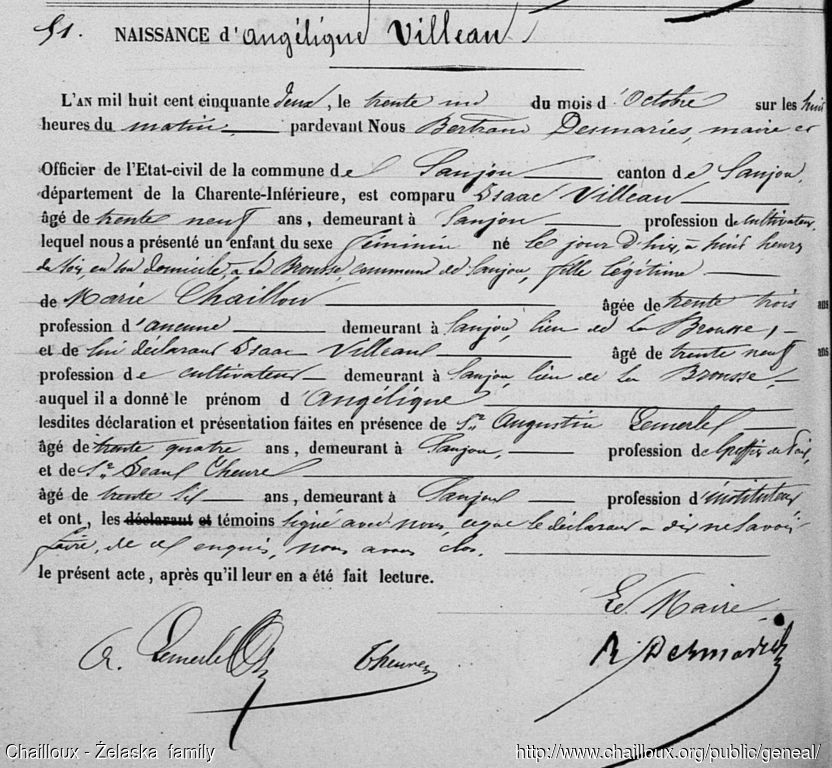 51. NAISSANCE d'Angélique Villeau
L'AN mil huit cent cinquante deux, le trente un du mois d'Octobre sur les huit
heures du matin pardevant Nous Bertrand Desmaries, maire et
Officier de l'Etat-civil de la commune de Saujon canton de Saujon,
département de la Charente-Inférieure, est comparu Isaac Villeau
âgé de trente neuf ans, demeurant à Saujon profession de cultivateur,
lequel nous a présenté un enfant du sexe féminin né le jour d'hier, à huit heures
du soir, en son domicile, à la Brousse, commune de Saujon, fille légitime
de Marie Chaillou âgée de trente trois ans
profession d'aucune demeurant à Saujon, lieu de la Brousse,
et de lui déclarant Isaac Villeau âgé de trente neuf ans
profession de cultivateur demeurant à Saujon, lieu de la Brousse.
auquel il a donné le prénom d'Angélique
lesdites déclaration et présentation faites en présence de Sr. Augustin Lemerle
âgé de trente quatre ans, demeurant à Saujon, profession de Greffier de Paix,
et de Sr. Jean
âgé de trente six ans, demeurant à Saujon profession d'instituteur
et ont, les déclarant et témoins signé avec nous, ce que le déclarant a dit ne savoir
faire, de ce enquis, nous avons clos.
le présent acte, après qu'il leur en a été fait lecture.
Le Maire,
A. Lemerle
B. Desmaries
Chailloux - Želaska family http://www.chailloux.org/public/geneal/